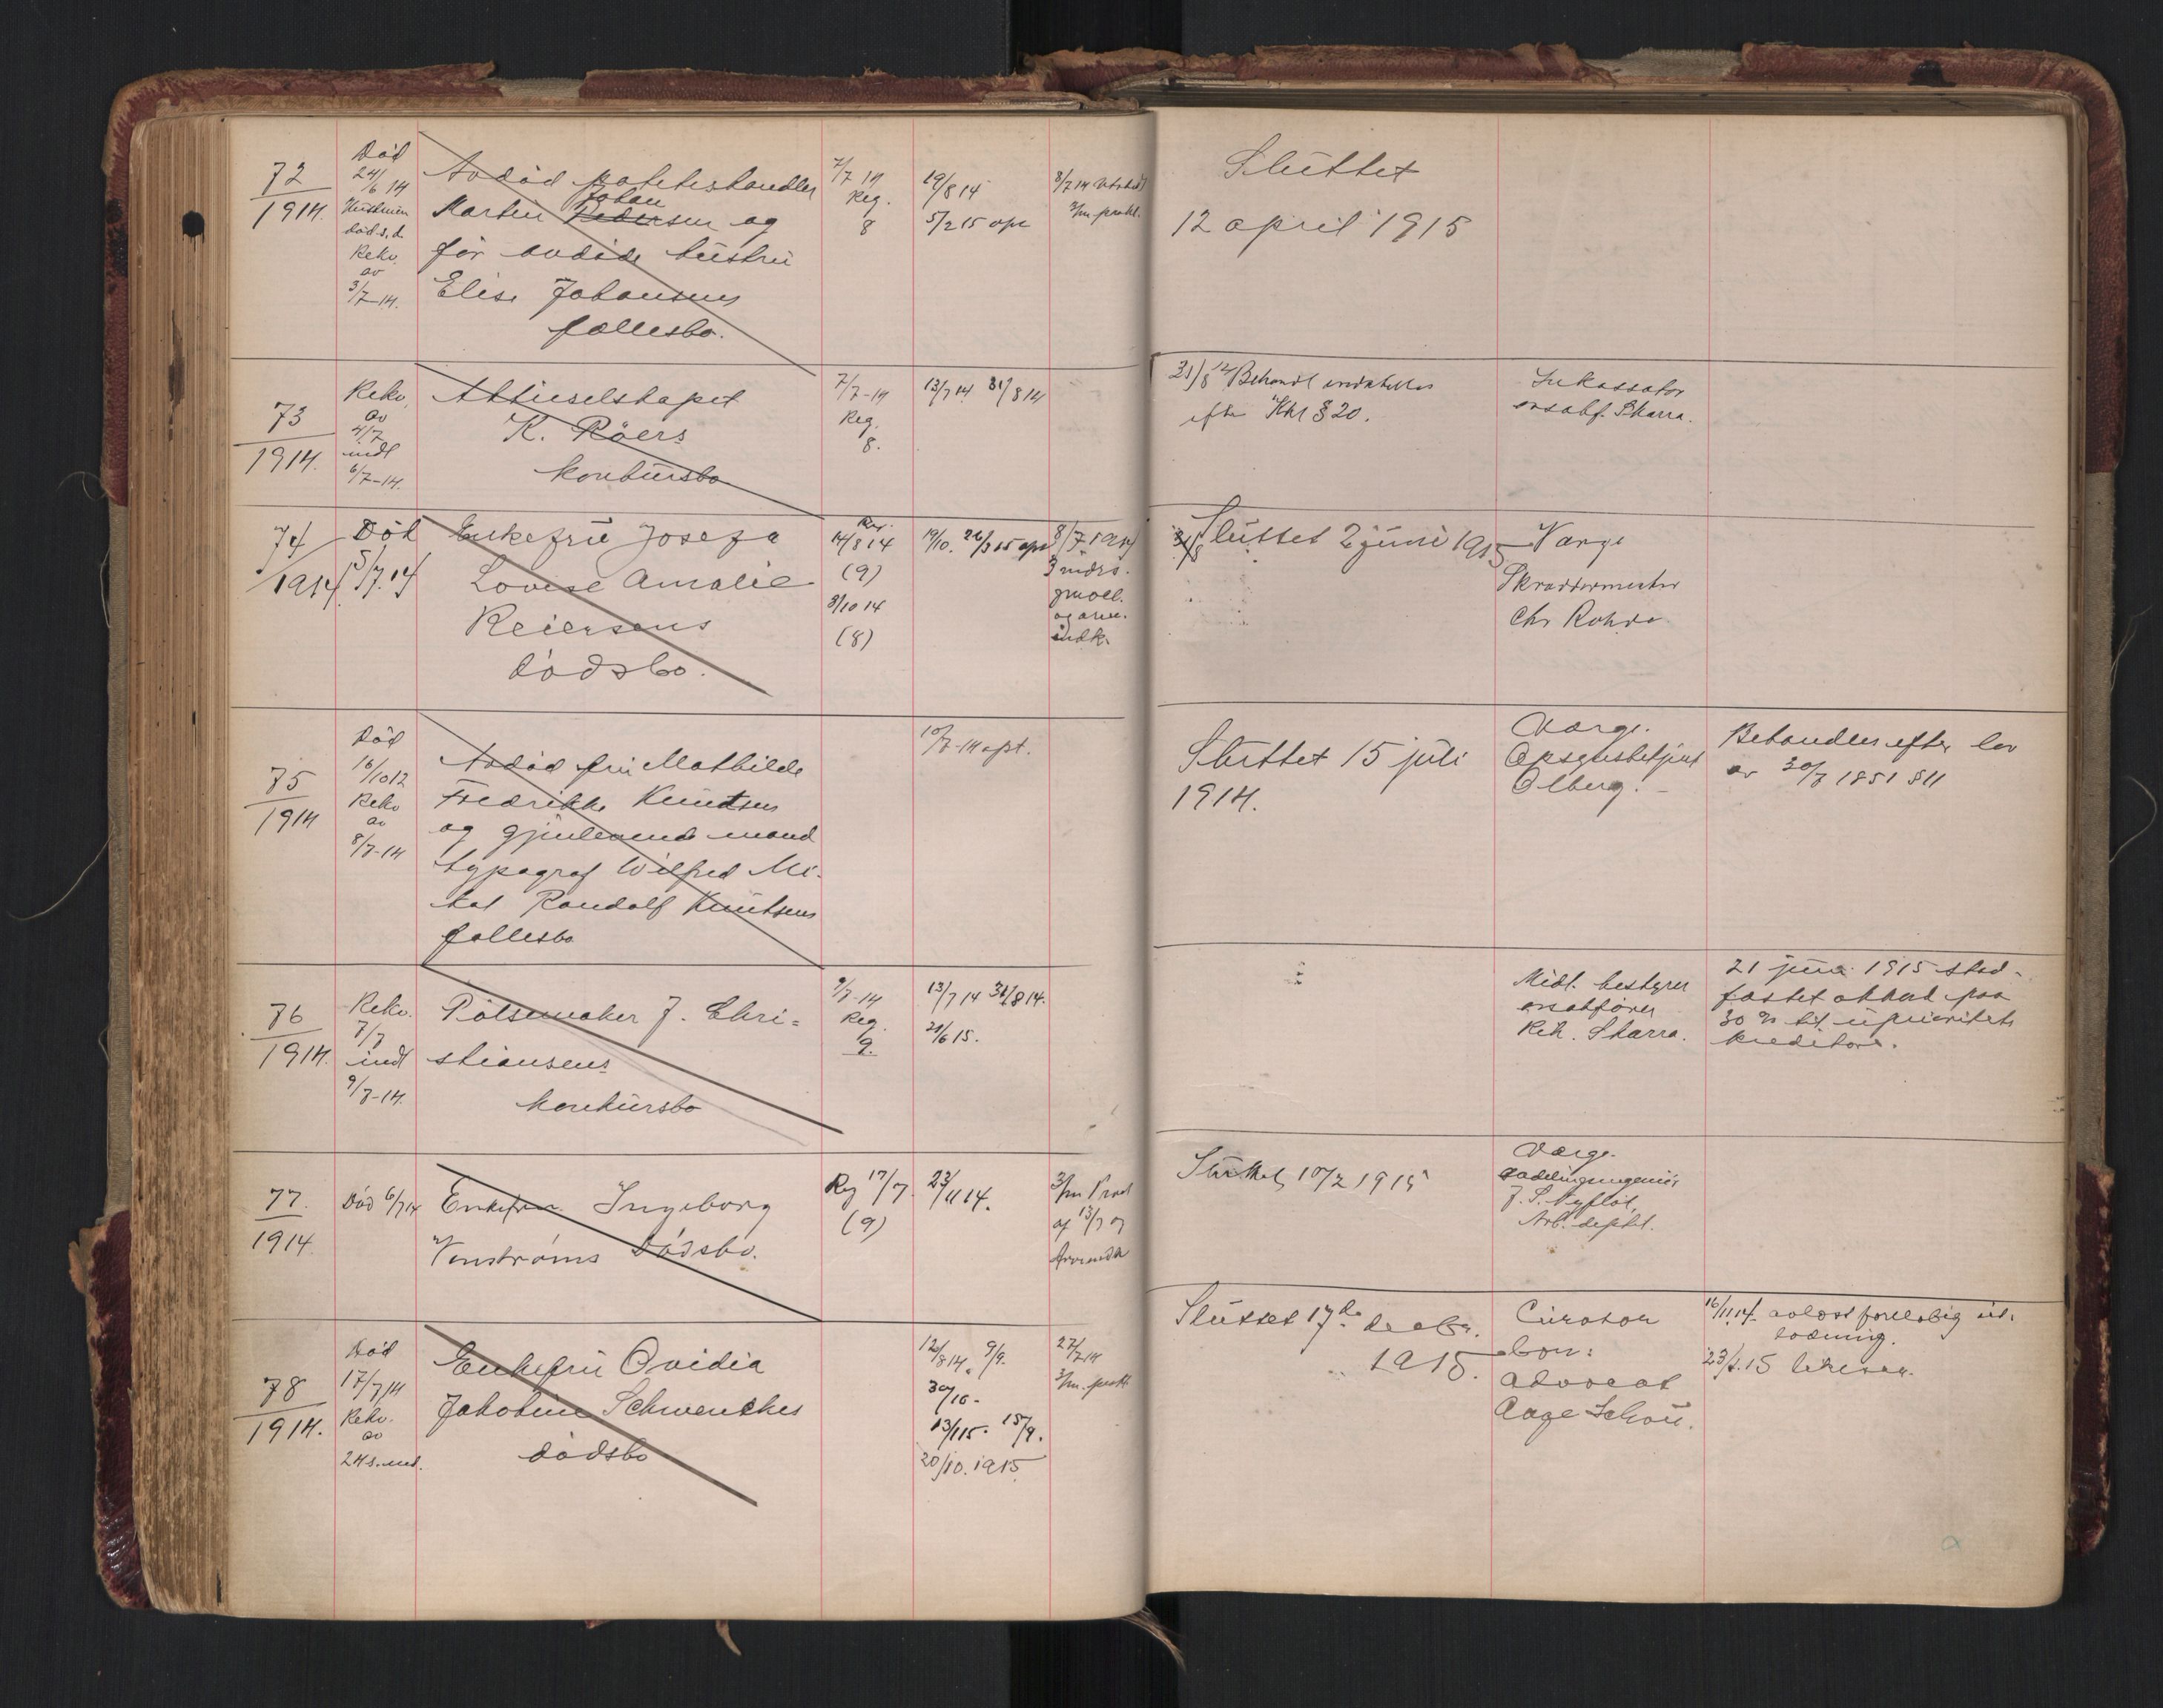 72
1914.
Död
24/6 14
Hustruen
död s.d.
Rekv.
av
3/7-14.
Avdöd poteteshandler
Martin Johan Pedersen og
för avdöde hustru
Elise Johansens
fællesbo.
7/7 14
Reg.
8
19/8 14
5/2 15 opr
8/7 14 utstedt
3/m prokl.
Sluttet
12 april 1915
73
1914.
Rekv.
av
4/7
indl
6/7-14.
Aktieselskapet
K. Röers
konkursbo
7/7-14
Reg.
8.
13/7 14 31/8 14
31/8 14 Behandl indstilles
efter Kkl § 20.
Inkassator
ovsakf. Skarra.
74
1914.
Död
5/7.14
Enkefru Josefa
Lovise Amalie
Reiersens
dödsbo.
Reg.
14/8 14
(9)
3/10 14
(8)
19/10. 26/3 15 opr
8/7 1914
3 mdrs.
proel.
og arv.
indk.
Sluttet 2 juni 1915
Værge
Skræddermester
Chr Rohde
75
1914
Död
16/10 12
Rekv
av
8/7-14
Avdöd fru Mathilde
Fredrikke Knutsen
og gjenlevende mand
typograf Wilfred Mi-
kal Randolf Knutsens
fællesbo
10/7-14 opst.
Sluttet 15 juli
1914.
Værge.
Opsynsbetjent
Olberg.
Behandles efter lov
av 30/7 1851 § 11
76
1914.
Rekv.
7/7
indl
9/7-14.
Pölsemaker J. Chri=
stiansens
konkursbo
9/7-14
Reg.
9.
13/7 14 31/8 14.
21/6 15.
Midl. bestyrer
ovsakfører
Rich. Skarra.
21 juni 1915 stad-
fæstet akkord paa
30 % til uprioriterte
kreditorer.
77.
1914.
Död 6/7 14
Enkefru Ingeborg
Venströms Dödsbo.
Reg 17/7.
(9)
23/11 14.
3/m Procl
af 13/7 og
Arveindk
Sluttet 10/2 1915
Værge.
J. S. Nyflöt,
Arb. depht.
78
1914.
Död
17/7 14
Rekv.
av
24 s. md.
Enkefru Ovidia
Jakobine Schwenckes
dödsbo
12/8 14. 9/9.
30/10.
13/1 15. 15/9.
20/10. 1915
27/7 14
3/m. prokl
Sluttet 17de decbr.
1915.
Curator
bon:
advocat
Aage Schou.
16/11 14. avløst foreløbig ut-
lodning.